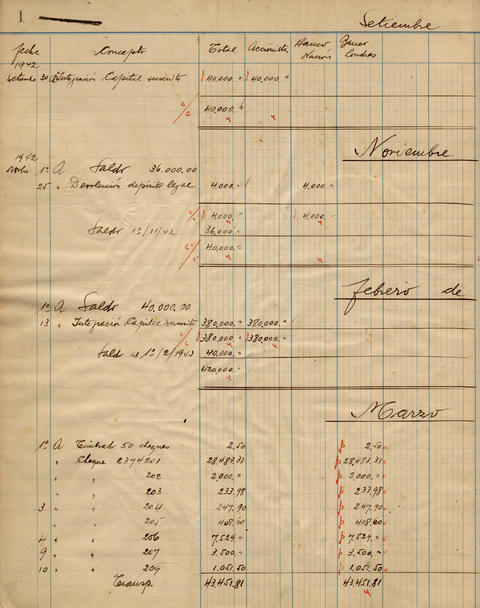 1 Setiembre
fecha Concepto Total Accionistas Banco Nación Banco Londres
1942
Setiembre 30 A Integración Capital suscrito 40,000.- 40,000.-
40,000.-
1942 Noviembre
Novbre 1º A Saldo 36.000.00
25 " Devolución depósito legal 4,000.- 4,000.-
4,000.- 4,000.-
Saldo 1º/11/42 36,000.-
40,000.-
febrero de
1º A Saldo 40.000.00
13 " Integración Capital suscrito 380,000.- 380,000.-
380,000.- 380,000.-
Saldo al 1º/2/1943 40,000.-
420,000.-
Marzo
1º A Timbrado 50 cheques 2,50 2,50
" Cheque 2374201 28,483,33 28,483,33
" " 202 2,000.- 2,000.-
" " 203 233,98 233,98
3 " " 204 247,90 247,90
" " 205 408,60 408,60
4 " " 206 7,524.- 7,524.-
9 " " 207 3,500.- 3,500.-
10 " " 209 1,051,50 1,051,50
Transp. 43,451,81 43,451,81